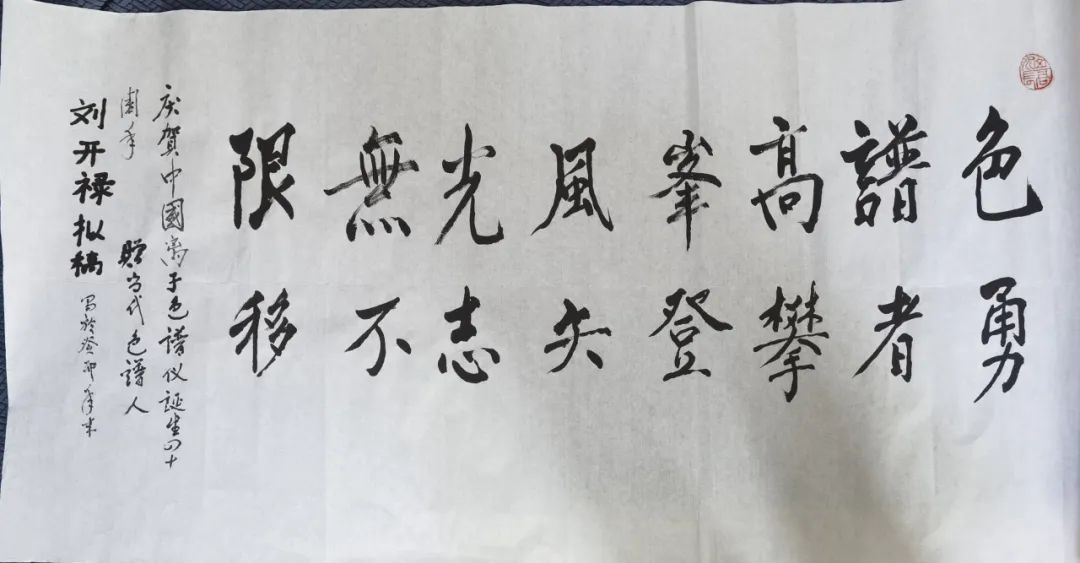 色譜高峯風光無限
勇者攀登矢志不移
庆賀中國离子色譜仪誕生四十
周年 贈当代色譜人
刘开禄拟稿 写於癸卯年末